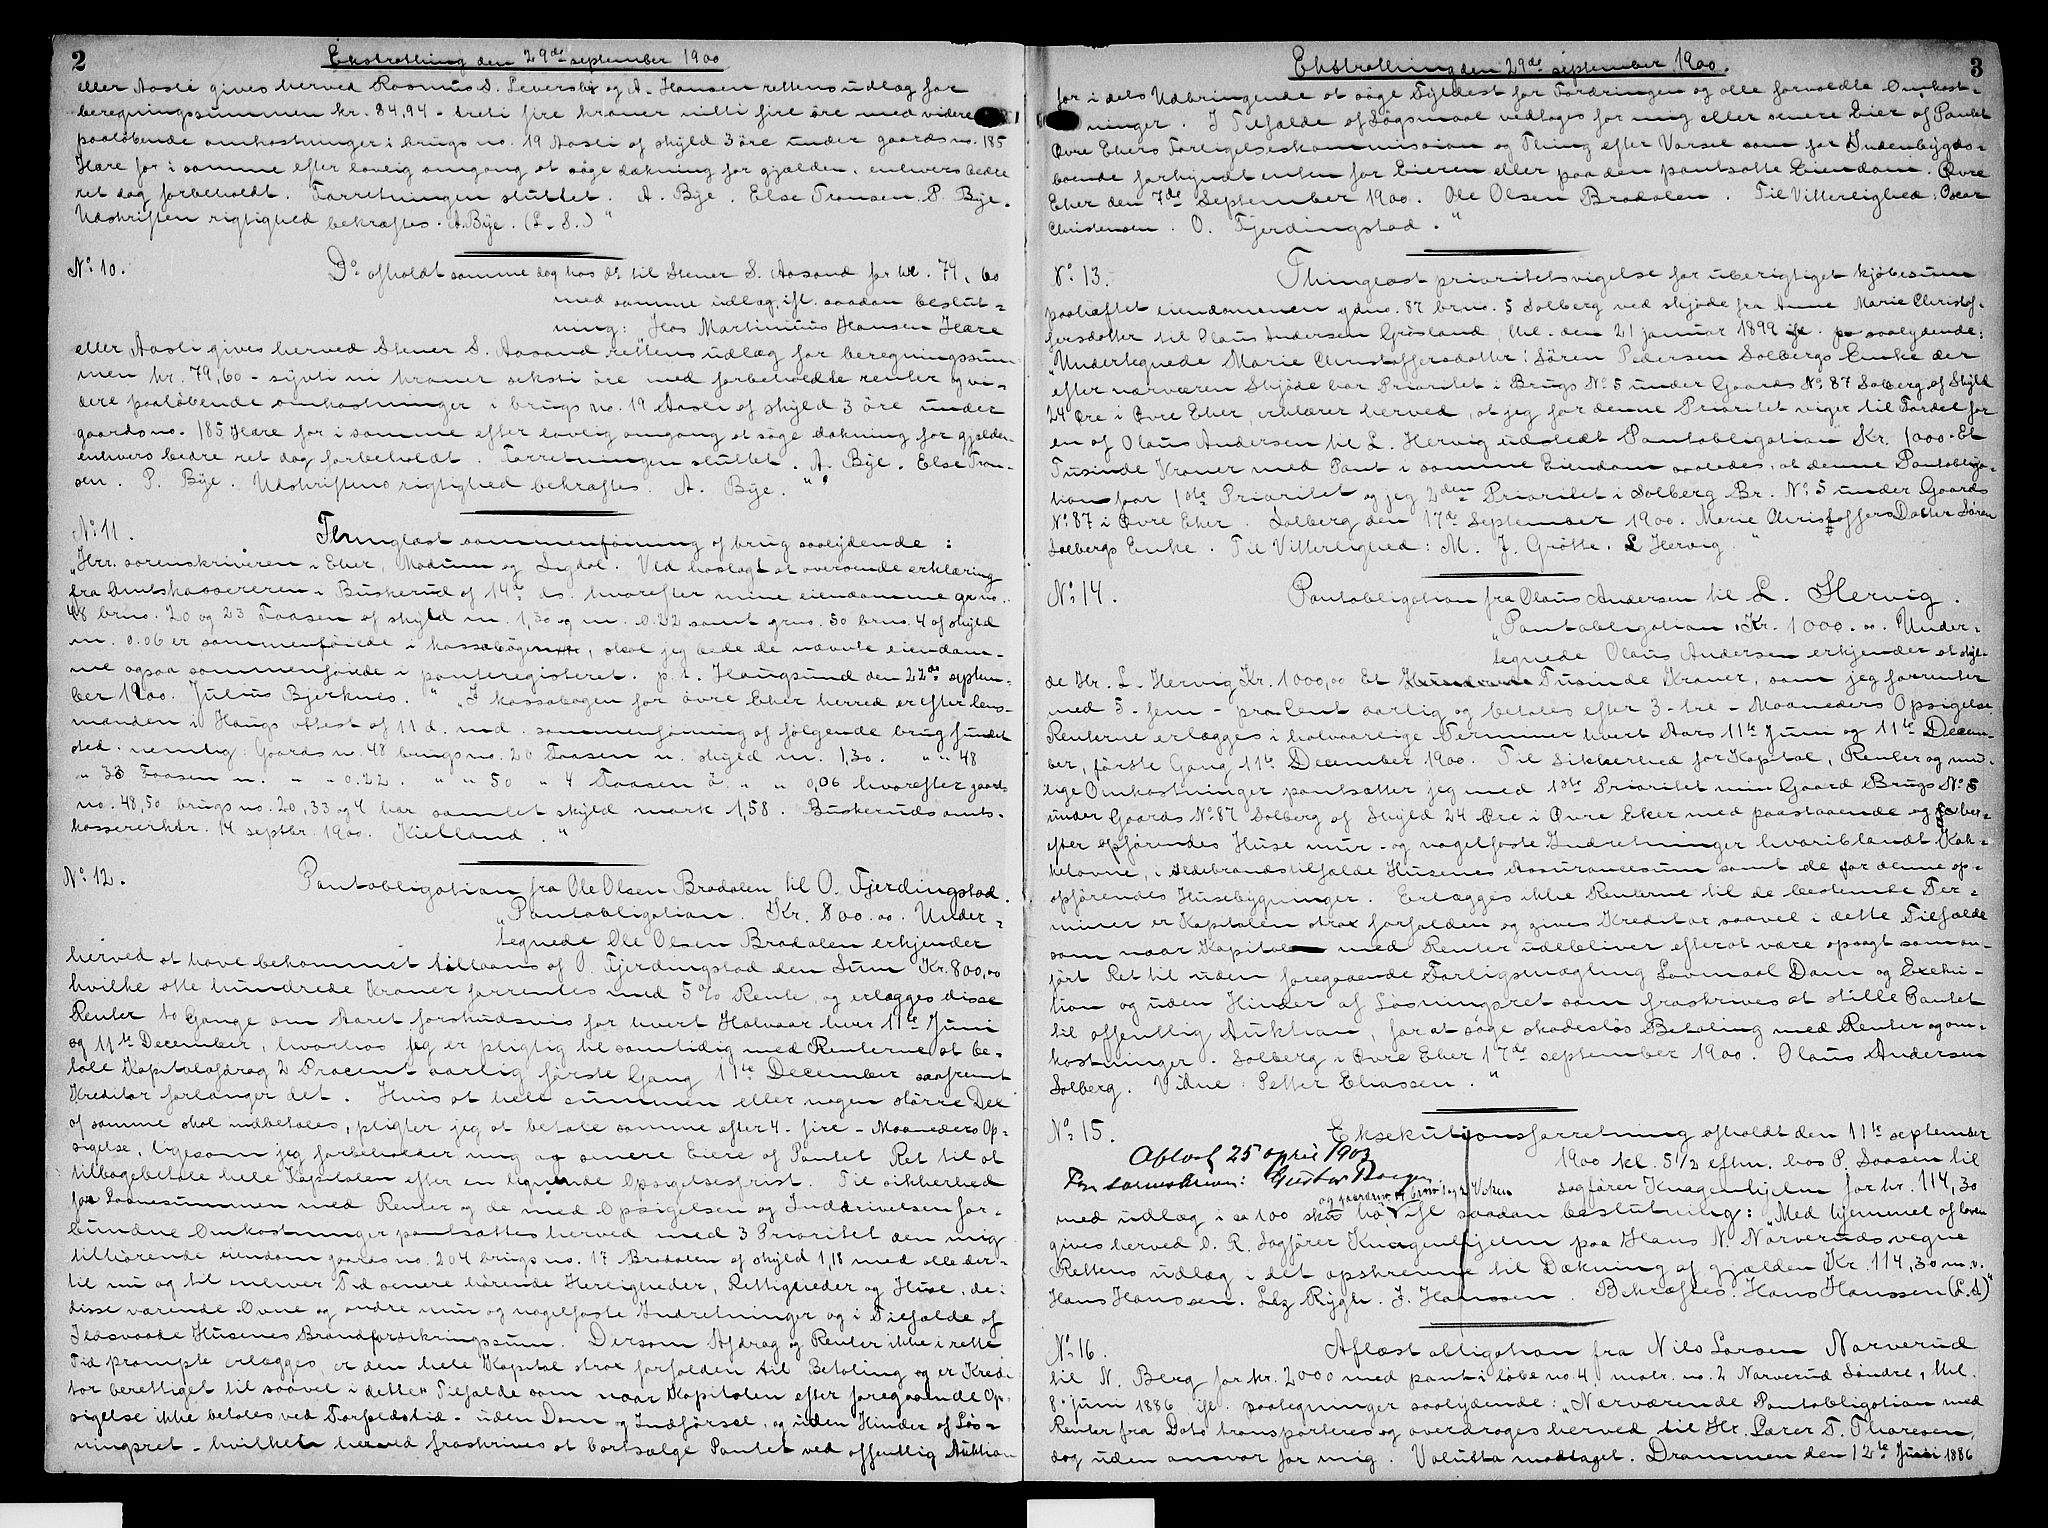 2
Ekstratthing den 29de september 1900
eller Aasli gives herved Rasmus S. Leversby og A. Hansen rettens udlæg for
beregningssummen kr. 84,94 - åtteti fire kroner nitti fire öre med videre
paalöbende omkostninger i brugs no. 19 Aasli af skyld 3 öre under gaards no. 185
Hære for i samme efter lovlig omgang at söge dækning for gjælden, enhvers bedre
ret dog forbeholdt. Forretningen sluttet. A. Bye. Else Fransen. P. Bye.
Udskriftens rigtighed bekræftes. A. Bye. (L. S.)"
No. 10. Do afholdt samme dag hos do til Stener S. Aasand for kr. 79,60
med samme udlæg, ifl. saadan beslut-
ning: Hos Martinius Hansen Hære
eller Aasli gives herved Stener S. Aasand rettens udlæg for beregningssum-
men kr. 79,60 - sytti ni kroner seksti öre med forbeholdte renter og vi-
dere paalöbende omkostninger i brugs no. 19 Aasli af skyld 3 öre under
gaards no. 185 Hære for i samme efter lovlig omgang at söge dækning for gjælden
enhvers bedre ret dog forbeholdt. Forretningen sluttet. A. Bye. Else Fran-
sen. P. Bye. Udskriftens rigtighed bekræftes. A. Bye."
No. 11. Thinglæst sammenföining af brug saalydende:
"Hrr. sorenskriveren i Eker, Modum og Sigdal. Ved hoslagt at oversende erklæring
fra Amtskassereren i Buskerud af 14de ds. hvorefter mine eiendomme grno.
48 brno. 20 og 23 Faasen af skyld m. 1,30 og m. 0.22 samt grno. 50 brno. 4 af skyld
m. 0.06 er sammenföiede i kassabogen, skal jeg bede de nævnte eiendom-
me ogsaa sammenföiede i panteregisteret. p.t. Haugsund den 22de septem-
ber 1900. Julius Bjerknes." "I kassabogen for övre Eker herred er efter lens-
manden i Haugs attest af 11 d. md. sammenföining af fölgende brug fundet
sted. nemlig: Gaards no. 48 brugs no. 20 Faasen n. skyld m. 1,30. " " 48
" 33 Faasen n. " " 0.22. " " 50 " 4 Faasen ö. " " 0,06 hvorefter gaards
no. 48,50 brugs no. 20, 33 og 4 har samlet skyld mark 1,58. Buskeruds amts-
kassererktr. 14 septbr. 1900. Kielland."
No. 12. Pantobligation fra Ole Olsen Bradalen til O. Fjerdingstad.
"Pantobligation. Kr. 800.00. Under-
tegnede Ole Olsen Bradalen erkjender
herved at have bekommet tillaans af O. Fjerdingstad den Sum Kr. 800,00
hvilke otte hundrede Kroner forrentes med 5% Rente, og erlægges disse
Renter to Gange om Aaret forskudsvis for hvert Halvaar hver 11te Juni
og 11te December, hvorhos jeg er pligtig til samtidig med Renterne at be-
tale Kapitalafdrag 2 Procent aarlig förste Gang 11te December saafremt
Kreditor forlanger det. Hvis at hele summen eller nogen större Del
af samme skal indbetales, pligter jeg at betale samme efter 4 - fire - Maaneders Op-
sigelse, ligesom jeg forbeholder mig og senere Eiere af Pantet Ret til at
tilbagebetale hele Kapitalen efter en lignende Opsigelsesfrist. Til sikkerhed
for Laanesummen med Renter og de med Opsigelsen og Inddrivelsen for-
bundne Omkostninger pantsættes herved med 3 Prioritet den mig
tilhörende eiendom gaards no. 204 brugs no. 17 Bradalen af skyld 1,18 med alle der-
til nu og til enhver Tid senere hörende Herligheder, Rettigheder og Huse, de i
disse værende Ovne og andre mur og nagelfaste Indretninger og i Tilfælde af
Ildsvaade Husenes Brandforsikringssum. Dersom Afdrag og Renter ikke i rette
Tid prompte erlægges, er den hele Kapital strax forfalden til Betaling og er Kredi-
tor berettiget til saavel i dette Tilfælde som naar Kapitalen efter foregaaende Op-
sigelse ikke betales ved Forfaldstid - uden Dom og Indförsel, og uden Hinder af Lös-
ningsret - hvilket herved fraskrives at bortsælge Pantet ved offentlig Auktion
Ekstratthing den 29de september 1900.
3
for i dets Udbringende at söge Fyldest for Fordringen og alle forvoldte Omkost-
ninger. I Tilfælde af Sögsmaal vedtages for mig eller senere Eier af Pantet
Övre Ekers Forligelseskommission og Thing efter Varsel som for Indenbygds-
boende forkyndt enten for Eieren eller paa den pantsatte Eiendom. Övre
Eker den 7de September 1900. Ole Olsen Bradalen. Til Vitterlighed: Oscar
Christensen. O. Fjerdingstad."
No. 13. Thinglæst prioritetsvigelse for uberigtiget kjöbesum
paahæftet eiendommen gdno. 87 brno. 5 Solberg ved skjöde fra Anne Marie Christof-
fersdatter til Olaus Andersen Grösland, thl. den 21 januar 1899 ifl. saalydende:
"Undertegnede Marie Christoffersdatter: Sören Pedersen Solbergs Enke der
efter nærværen Skjöde har Prioritet i Brugs No. 5 under Gaards No. 87 Solberg af Skyld
24 Öre i Övre Eker, erklærer herved, at jeg for denne Prioritet viger til Fordel for
en af Olaus Andersen til L. Hervig udstedt Pantobligation Kr. 1000 - Et
Tusinde Kroner med Pant i samme Eiendom saaledes, at denne Pantobliga-
tion faar 1ste Prioritet og jeg 2den Prioritet i Solberg Br. No. 5 under Gaards
No. 87 i Övre Eker. Solberg den 17de September 1900. Marie Christoffers Datter Sören
Solbergs Enke. Til Vitterlighed: M. J. Grötte. L Hervig."
No. 14. Pantobligation fra Olaus Andersen til L. Hervig.
"Pantobligation Kr. 1000.00. Under-
tegnede Olaus Andersen erkjender at skyl-
de Hr. L. Hervig Kr. 1000,00 Et Tusinde Kroner, som jeg forrenter
med 5 - fem - pro Cent aarlig og betales efter 3 - tre - Maaneders Opsigelse.
Renterne erlægges i halvaarlige Terminer hvert Aars 11te Juni og 11te Decem-
ber, förste Gang 11te December 1900. Til Sikkerhed for Kapital, Renter og mu-
lige Omkostninger pantsætter jeg med 1ste Prioritet min Gaard Brugs No. 5
under Gaards No. 87 Solberg af Skyld 24 Öre i Övre Eker med paastaaende og her-
efter opförendes Huse mur- og nagelfaste Indretninger hvoriblandt Kak-
kelovne, i Ildebrandstilfælde Husenes Assurancesum samt de for denne op-
opförendes Husebygninger. Erlægges ikke Renterne til de bestemte Ter-
miner er Kapitalen strax forfalden og gives Kreditor saavel i dette Tilfælde
som naar Kapital med Renter udebliver efterat være opsagt som an-
fört Ret til uden foregaaende Forligsmægling Lovmaal Dom og Exeku-
tion og uden Hinder af Lösningsret som fraskrives at stille Pantet
til offentlig Auktion, for at söge skadeslös Betaling med Renter og om-
kostninger. Solberg i Övre Eker 17de september 1900. Olaus Andersen
Solberg. Vidne: Petter Eliassen."
No. 15. Eksekutionsforretning afholdt den 11te september
1900 kl. 5 1/2 eftm. hos P. Saasen til
sagförer Knagenhjelm for kr. 114,30
Aflæst 25 april 1903
For sorenskriveren: Gustav
med udlæg i ca 100 skn hö ifl saadan beslutning: "Med hjemmel af loven
gives herved O. R. Sagförer Knagenhjelm paa Hans N. Narveruds vegne
Rettens udlæg i det opskrevne til Dækning af gjælden Kr. 114,30 m.v.
Hans Hanssen. Lez Rygh. J. Hanssen. Bekræftes. Hans Hanssen (L.S)"
No. 16. Aflæst obligation fra Nils Larsen Narverud
til N. Berg for kr. 2000 med pant i löbe no. 4 matr. no. 2 Narverud Söndre, thl.
8. juni 1886 ifl. paategninger saalydende: "Nærværende Pantobligation med
Renter fra Dato transporteres og overdrages herved til Hr. Lærer T. Thoresen,
dog uden ansvar for mig. Valutta modtaget. Drammen den 12te Juni 1886